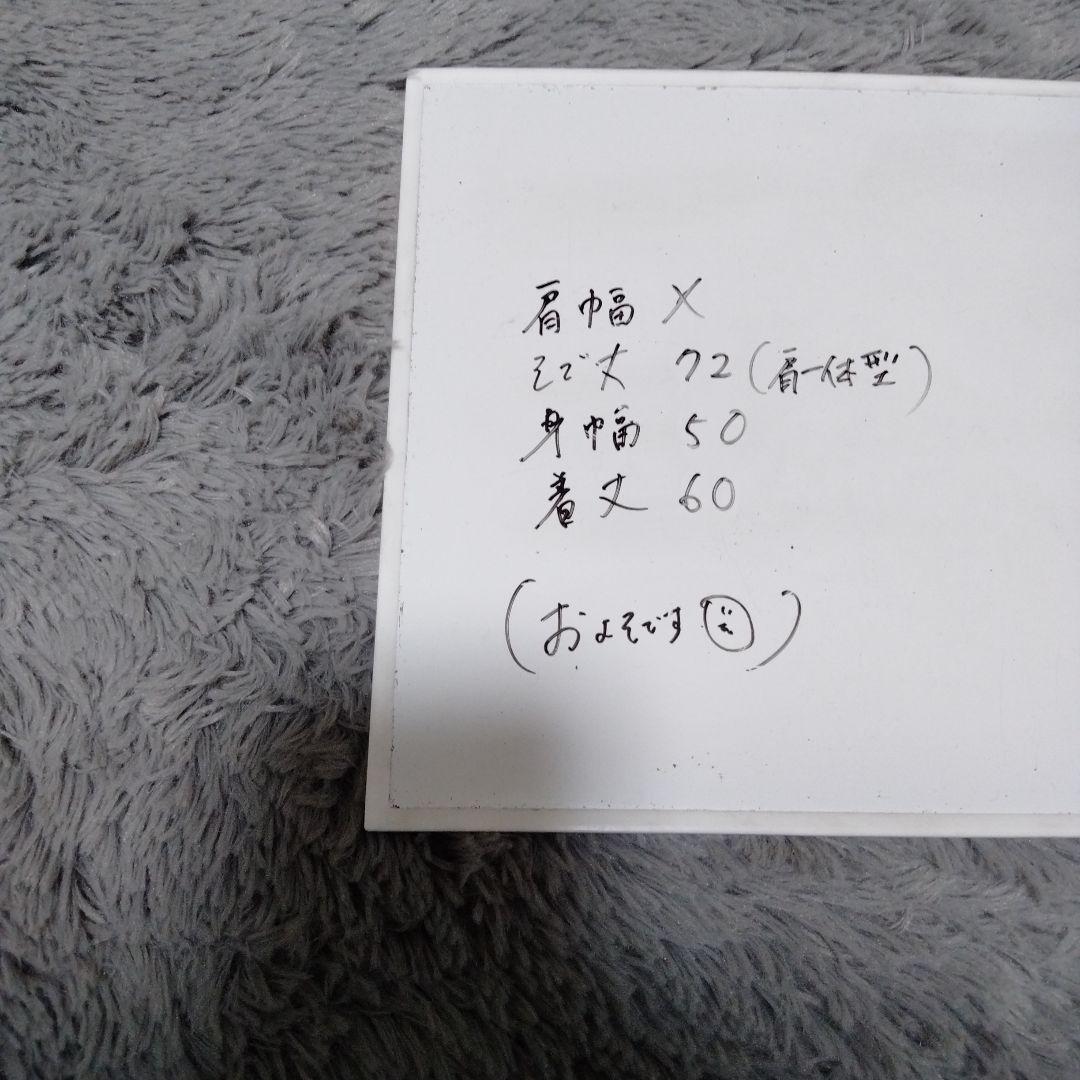 肩幅 X
そで丈 72(肩一体型)
身幅 50
着丈 60
(およそです)